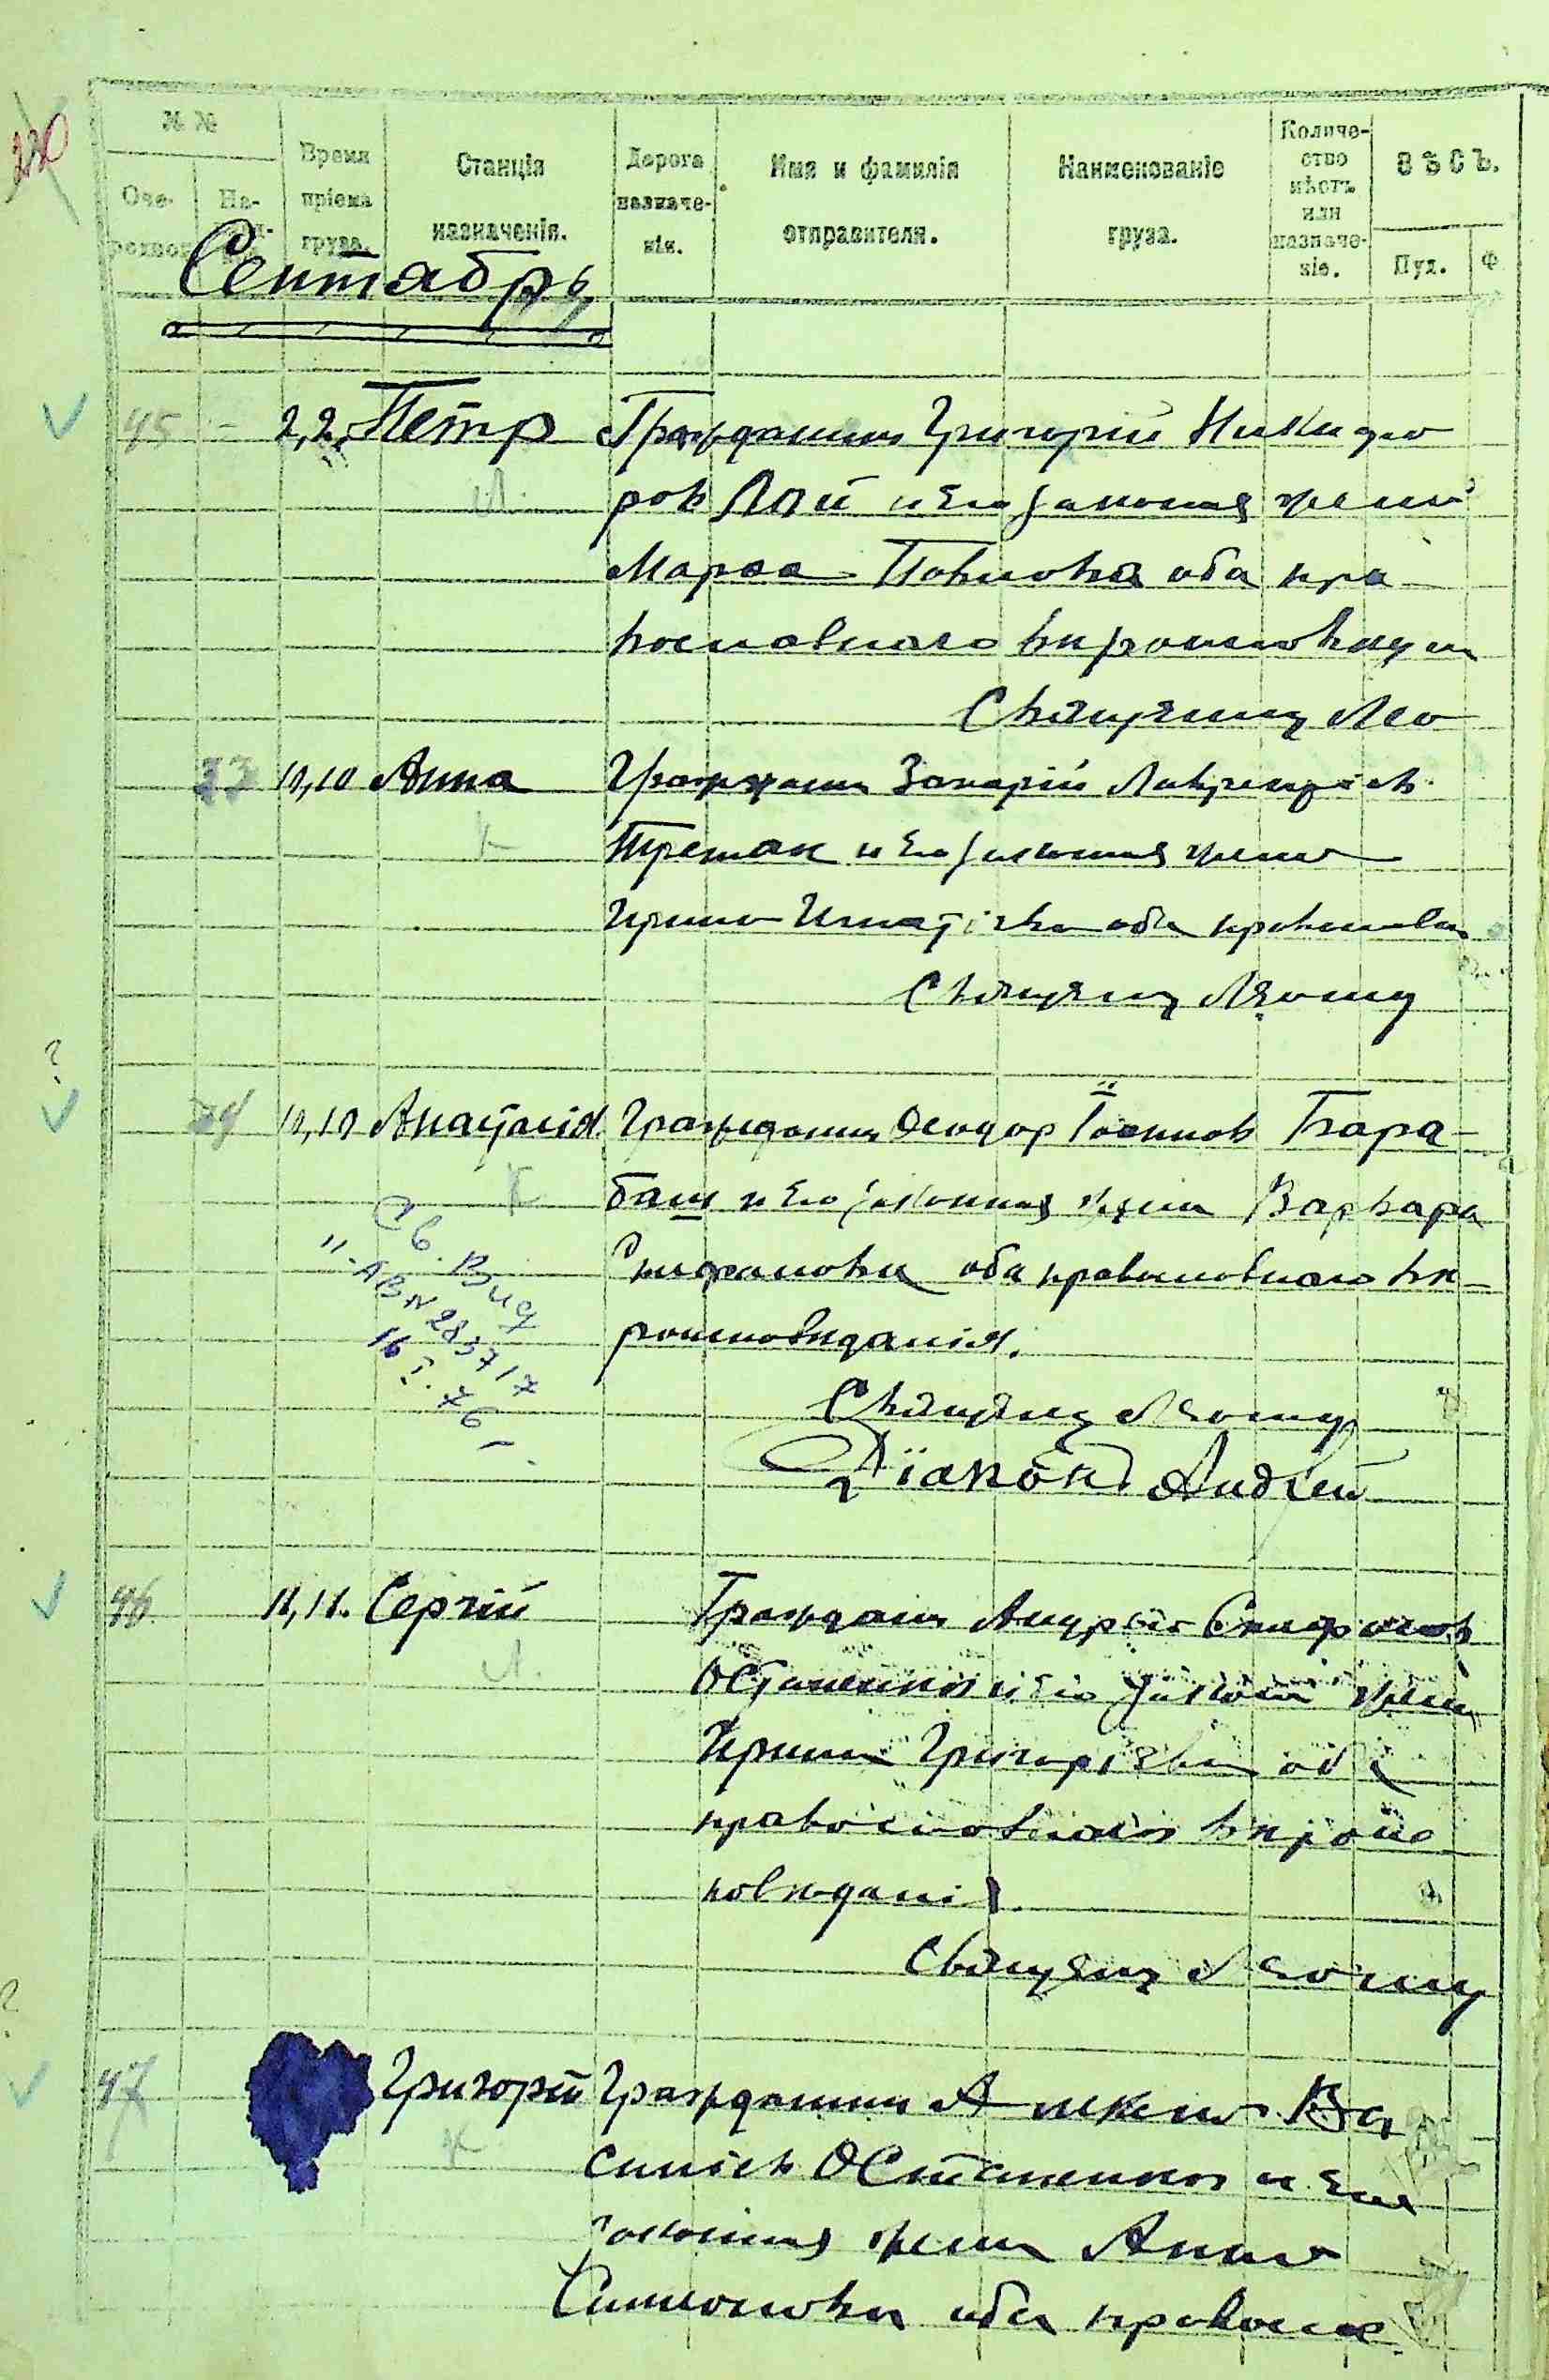 № №
Оче-
На-
Время
пріема
груза.
Станція
назначенія.
Дорога
назначе-
нія.
Имя и фамилія
отправителя.
Наименованіе
груза.
Количе-
ство
мѣстъ
или
назначе-
ніе.
ВѢСЪ.
Пуд.
Ф
Сентябрь
45 2,2, Петр Гражданин Григорій Никифо
ров Лой и его законная жена
Марфа Павлова оба пра
вославнаго вероисповедан
Священник
33 10,10 Анна Гражданин Захарій Лаврентіев
Третяк и его законная жена
Ирина Игнатіева оба православн
Священник
34 10,10 Анастасія Гражданин Феодор Іоаннов Бара-
баш и его законная жена Варвара
оба православнаго ве-
роисповеданія.
Священник
Діаконъ Андрей
46 11,11. Сергій Гражданин Андрей
Остапенко и его законая жена
Ирина Григоріева оба
православнаго вероис
поведанія
Священник
Св. выд
II-АВ N 283717
16 I. 76
47 Григорій Гражданин Ва
силіев Остапенко и его
законная жена Анна
Симеонова оба правосла